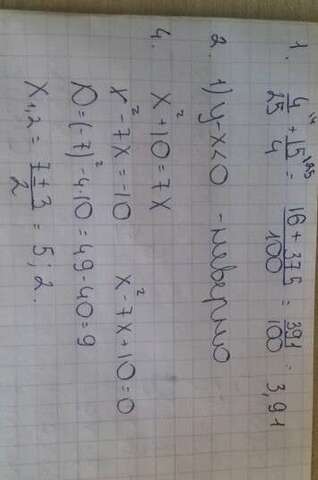 1. 4/25 + 15/4 = (16 + 375)/100 = 391/100 = 3,91
2. 1) y-x<0 - неверно
4. x² + 10 = 7x
x² - 7x = -10   x² - 7x + 10 = 0
D = (-7)² - 4·10 = 49 - 40 = 9
x₁,₂ = (7 ± 3)/2 = 5; 2.